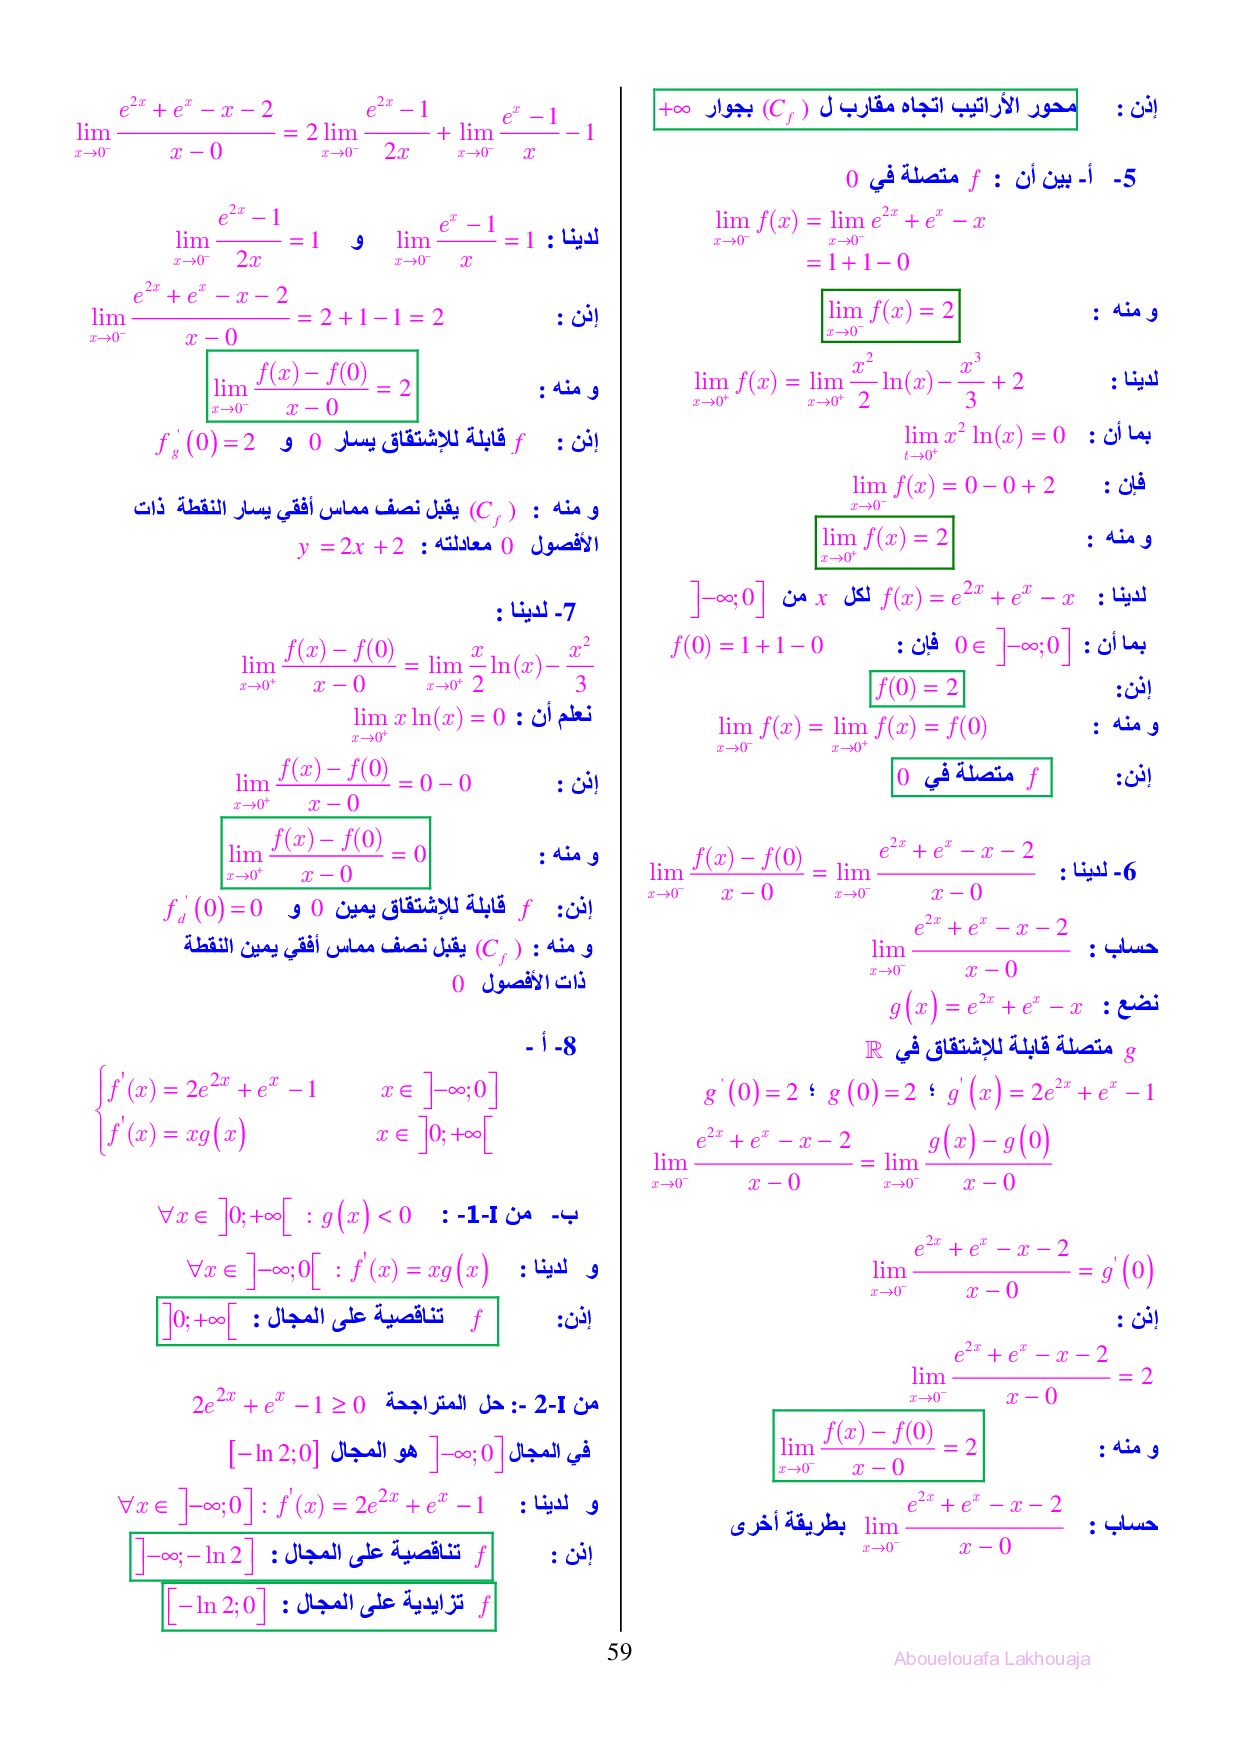 إذن : محور الأراتيب اتجاه مقارب ل (C_f) بجوار +∞
5- أ- بين أن : f متصلة في 0
lim_{x→0⁻} f(x) = lim_{x→0⁻} e^{2x} + e^x − x
= 1 + 1 − 0
و منه : lim_{x→0⁻} f(x) = 2
لدينا : lim_{x→0⁺} f(x) = lim_{x→0⁺} x²/2 ln(x) − x³/3 + 2
بما أن : lim_{t→0⁺} x² ln(x) = 0
فإن : lim_{x→0⁻} f(x) = 0 − 0 + 2
و منه : lim_{x→0⁺} f(x) = 2
لدينا : f(x) = e^{2x} + e^x − x لكل x من ]−∞;0]
بما أن : 0 ∈ ]−∞;0] فإن : f(0) = 1 + 1 − 0
إذن: f(0) = 2
و منه : lim_{x→0⁻} f(x) = lim_{x→0⁺} f(x) = f(0)
إذن: f متصلة في 0
6- لدينا : lim_{x→0⁻} (f(x) − f(0))/(x − 0) = lim_{x→0⁻} (e^{2x} + e^x − x − 2)/(x − 0)
حساب : lim_{x→0⁻} (e^{2x} + e^x − x − 2)/(x − 0)
نضع : g(x) = e^{2x} + e^x − x
g متصلة قابلة للإشتقاق في ℝ
g'(x) = 2e^{2x} + e^x − 1 ؛ g(0) = 2 ؛ g'(0) = 2
lim_{x→0⁻} (e^{2x} + e^x − x − 2)/(x − 0) = lim_{x→0⁻} (g(x) − g(0))/(x − 0)
lim_{x→0⁻} (e^{2x} + e^x − x − 2)/(x − 0) = g'(0)
إذن :
lim_{x→0⁻} (e^{2x} + e^x − x − 2)/(x − 0) = 2
و منه : lim_{x→0⁻} (f(x) − f(0))/(x − 0) = 2
حساب : lim_{x→0⁻} (e^{2x} + e^x − x − 2)/(x − 0) بطريقة أخرى
lim_{x→0⁻} (e^{2x} + e^x − x − 2)/(x − 0) = 2 lim_{x→0⁻} (e^{2x} − 1)/2x + lim_{x→0⁻} (e^x − 1)/x − 1
لدينا : lim_{x→0⁻} (e^x − 1)/x = 1 و lim_{x→0⁻} (e^{2x} − 1)/2x = 1
إذن : lim_{x→0⁻} (e^{2x} + e^x − x − 2)/(x − 0) = 2 + 1 − 1 = 2
و منه : lim_{x→0⁻} (f(x) − f(0))/(x − 0) = 2
إذن : f قابلة للإشتقاق يسار 0 و f'_g(0) = 2
و منه : (C_f) يقبل نصف مماس أفقي يسار النقطة ذات
الأفصول 0 معادلته : y = 2x + 2
7- لدينا :
lim_{x→0⁺} (f(x) − f(0))/(x − 0) = lim_{x→0⁺} x/2 ln(x) − x²/3
نعلم أن : lim_{x→0⁺} x ln(x) = 0
إذن : lim_{x→0⁺} (f(x) − f(0))/(x − 0) = 0 − 0
و منه : lim_{x→0⁺} (f(x) − f(0))/(x − 0) = 0
إذن: f قابلة للإشتقاق يمين 0 و f'_d(0) = 0
و منه : (C_f) يقبل نصف مماس أفقي يمين النقطة
ذات الأفصول 0
8- أ -
{ f'(x) = 2e^{2x} + e^x − 1 x ∈ ]−∞;0]
f'(x) = xg(x) x ∈ ]0;+∞[
ب- من I-1- : ∀x ∈ ]0;+∞[ : g(x) < 0
و لدينا : ∀x ∈ ]−∞;0[ : f'(x) = xg(x)
إذن: f تناقصية على المجال : ]0;+∞[
من I-2 -: حل المتراجحة 2e^{2x} + e^x − 1 ≥ 0
في المجال ]−∞;0] هو المجال [−ln 2;0]
و لدينا : ∀x ∈ ]−∞;0] : f'(x) = 2e^{2x} + e^x − 1
إذن : f تناقصية على المجال : ]−∞;−ln 2]
f تزايدية على المجال : [−ln 2;0]
59
Abouelouafa Lakhouaja